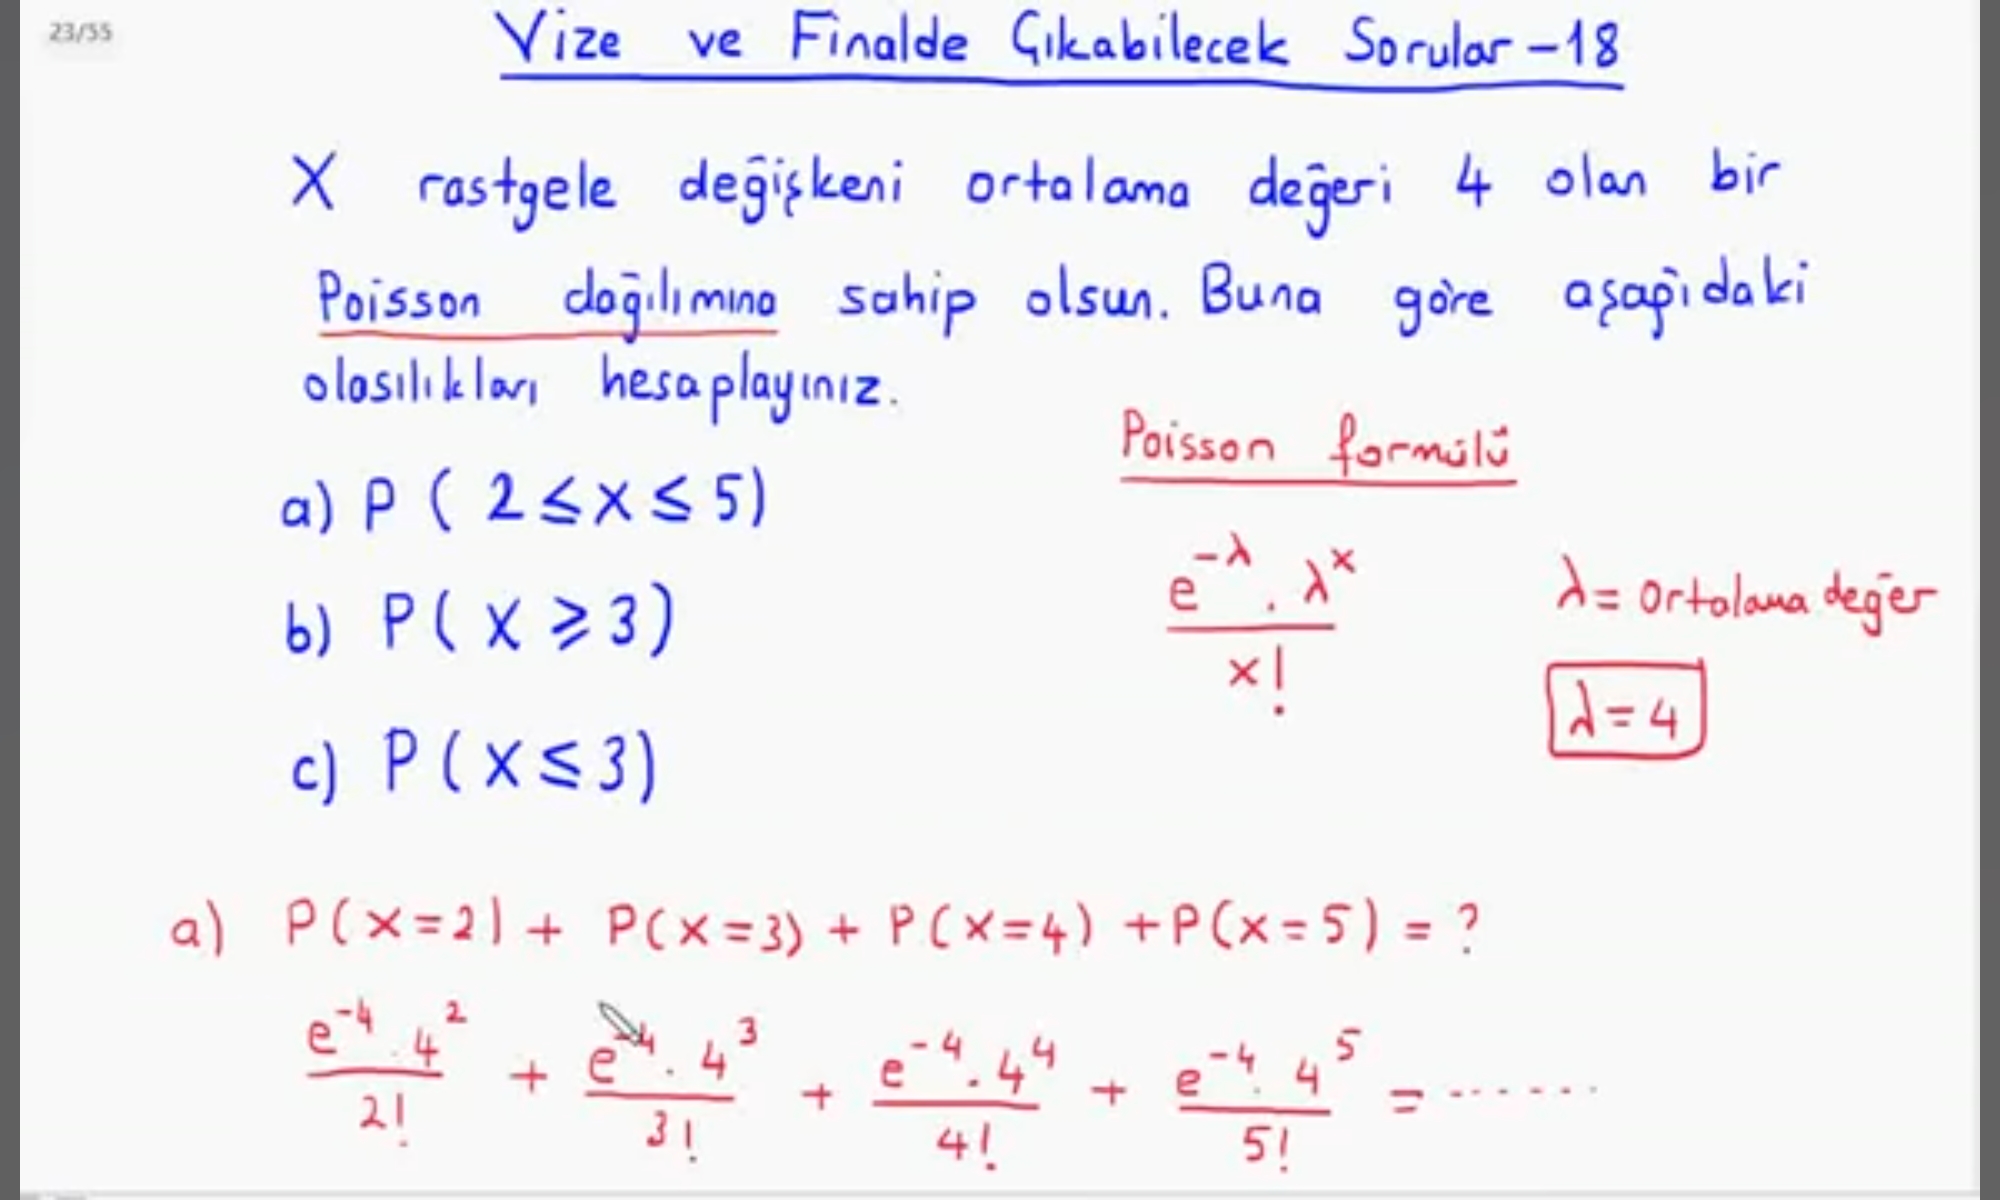 23/55
Vize ve Finalde Çıkabilecek Sorular-18
X rastgele değişkeni ortalama değeri 4 olan bir
Poisson dağılımına sahip olsun. Buna göre aşağıdaki
olasılıkları hesaplayınız.
Poisson formülü
a) P ( 2 ≤ x ≤ 5)
e^-λ . λ^x / x!
λ = ortalama değer
b) P( x ≥ 3)
λ = 4
c) P ( x ≤ 3)
a) P(x=2) + P(x=3) + P(x=4) + P(x=5) = ?
e^-4 . 4^2 / 2! + e^-4 . 4^3 / 3! + e^-4 . 4^4 / 4! + e^-4 . 4^5 / 5! = ......